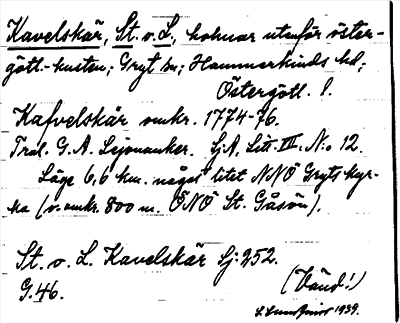 Kavelskär, St. o. L., holmar utanför öster-
götl.-kusten; Gryt sn; Hammarkinds hd;
Östergötl. l.
Kafvelskär omkr. 1774-76.
G. A. Lejonanker. Sj.A. Litt. III. N:o 12.
Läge 6,6 km. något litet NNÖ Gryts kyr-
ka (o. omkr. 800 m. ÖNÖ St. Gåsön).
St. o. L. Kavelskär Sj: 252.
G. 46.
(Vänd!)
1939.